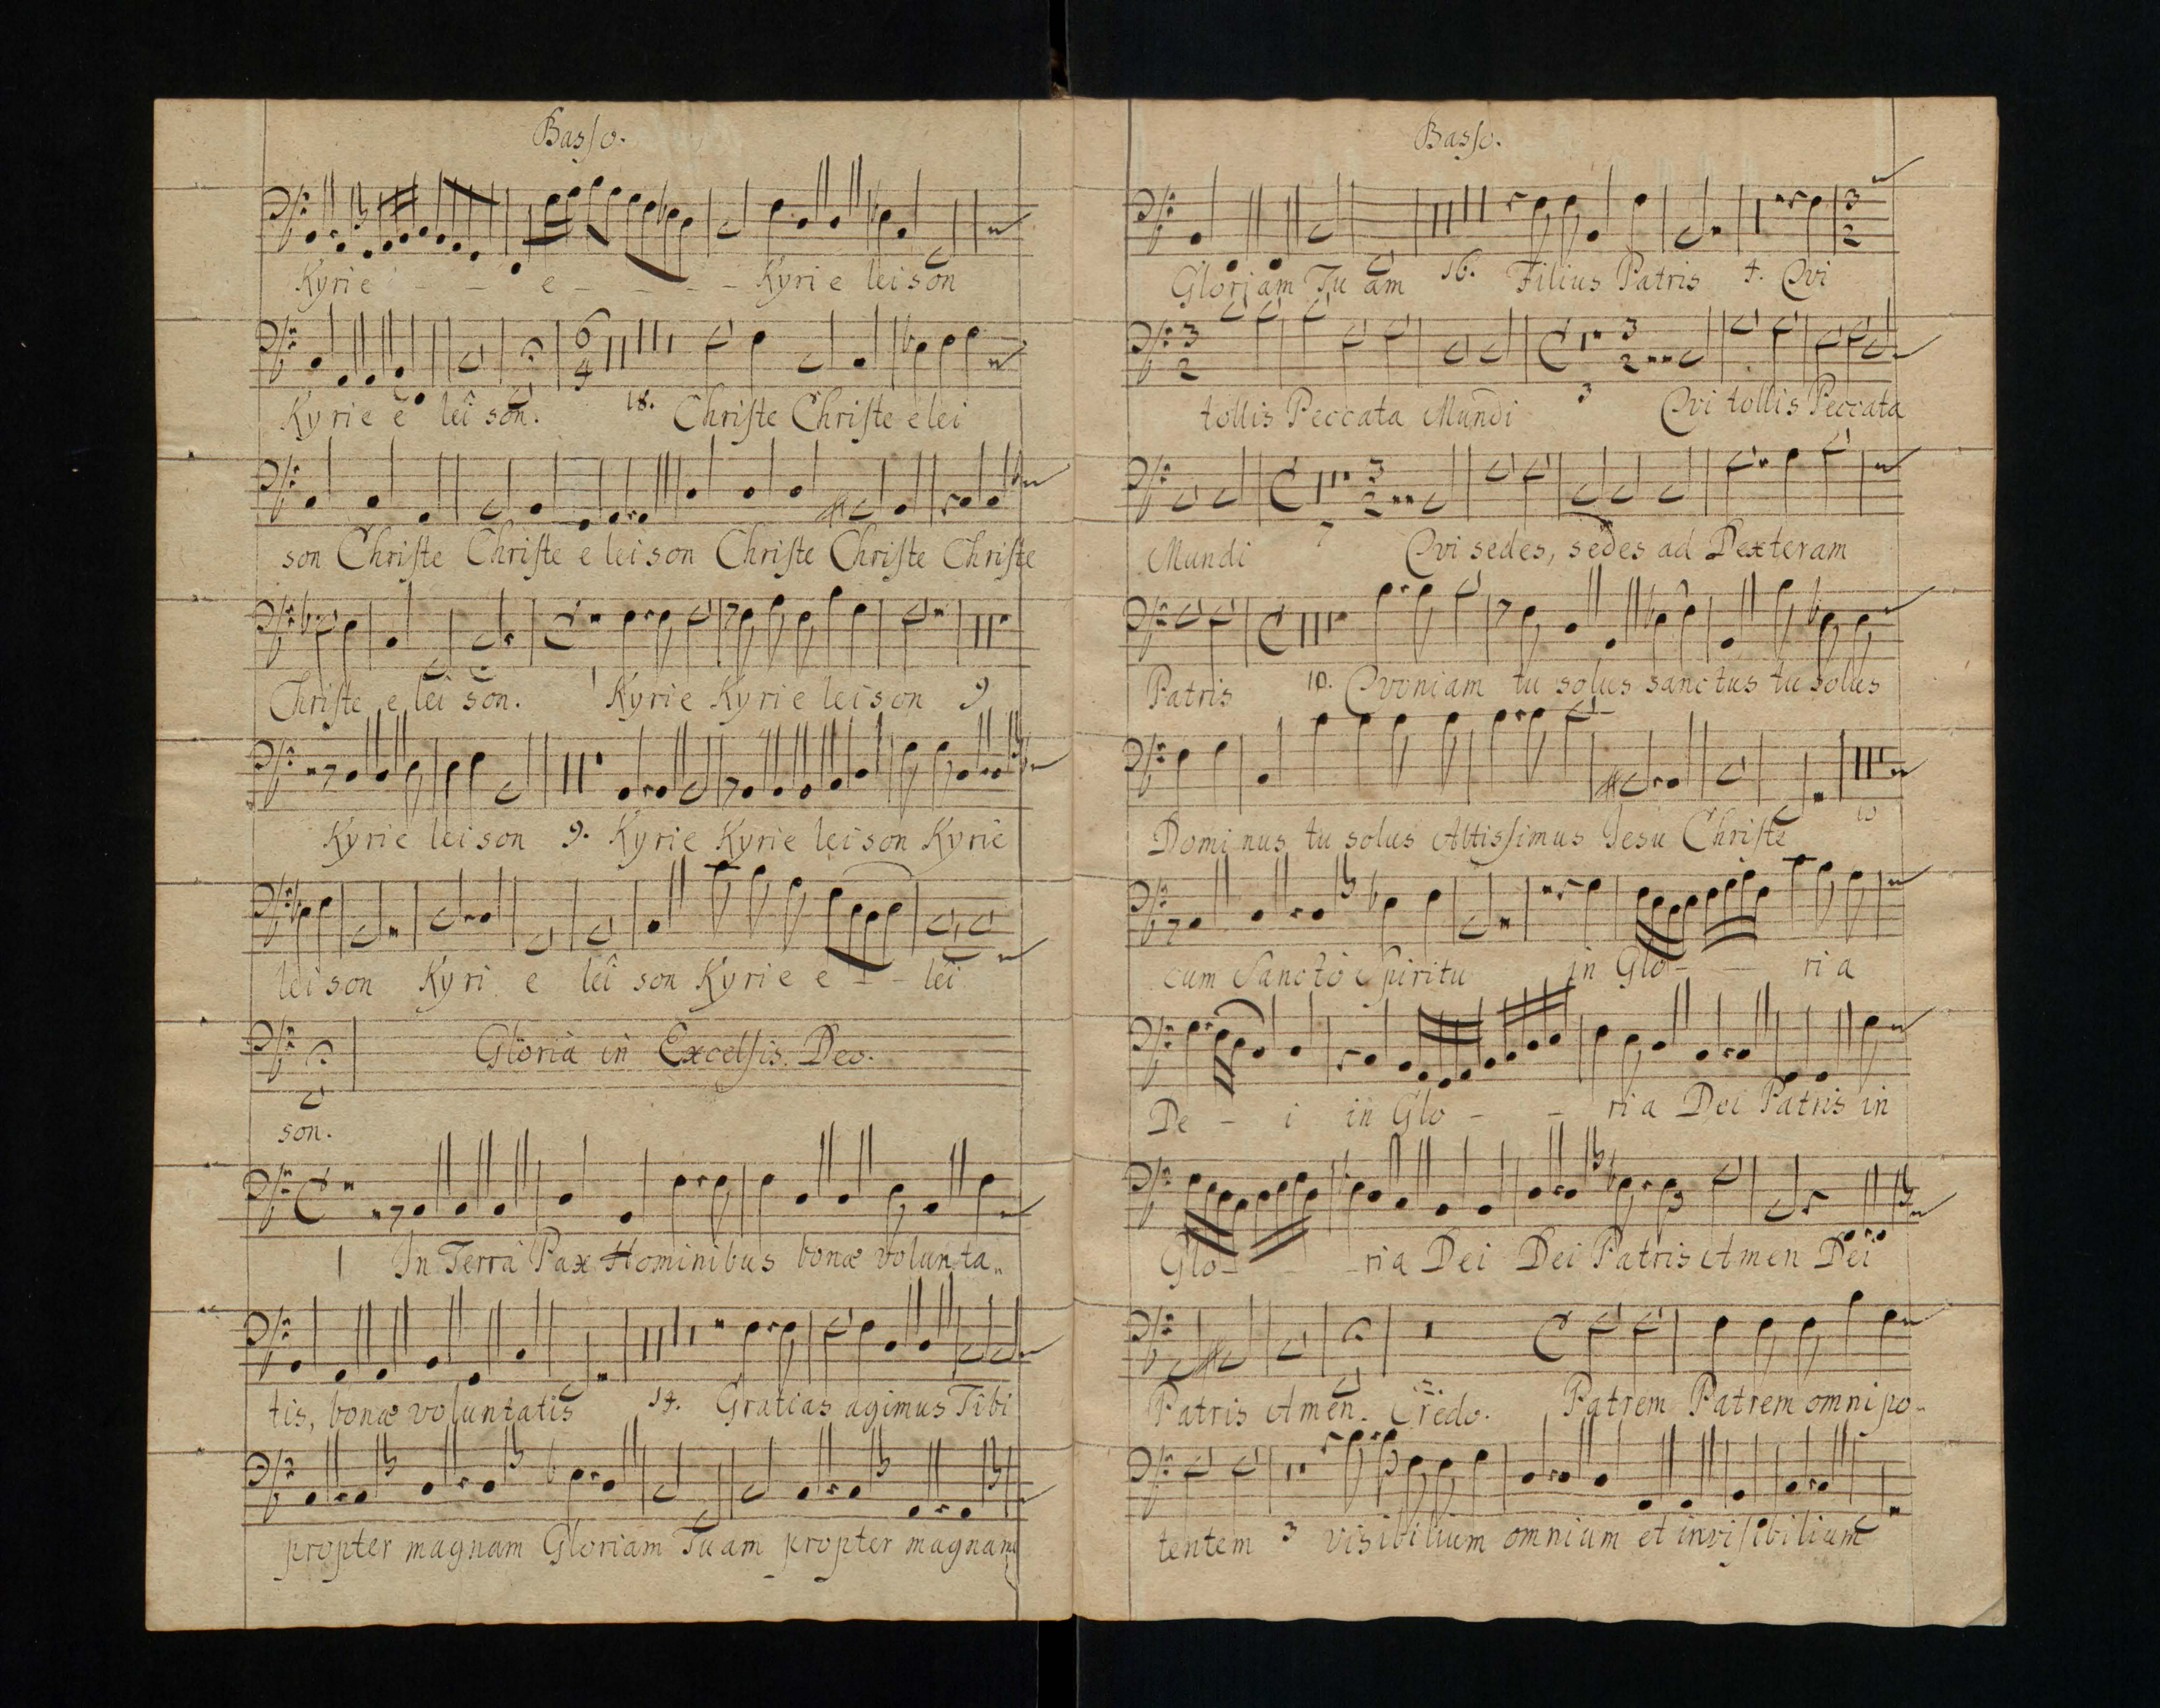 Basso.
Kyrie - - e - - - - Kyrie leison
Kyrie e lei son. 18. Christe Christe e lei
son Christe Christe e leison Christe Christe Christe
Christe e lei son. 1 Kyrie Kyrie leison 9
Kyrie leison 9. Kyrie Kyrie leison Kyrie
leison Kyri e lei son Kyrie e - - lei
Gloria in Excelsis Deo.
son.
1 In Terra Pax Hominibus bonæ volunta„
tis, bonæ voluntatis 14. Gratias agimus Tibi
propter magnam Gloriam Tuam propter magnam
Basso.
Gloriam Tu am 16. Filius Patris 4. Qvi
tollis Peccata Mundi 3 Qvi tollis Peccata
Mundi 7 Qvi sedes, sedes ad Dexteram
Patris 10. Qvoniam tu solus sanctus tu solus
Dominus tu solus Altissimus Jesu Christe 10
cum Sancto Spiritu in Glo - - ria
De - i in Glo - - ria Dei Patris in
Glo - - ria Dei Dei Patris Amen Dei
Patris Amen. Credo. Patrem Patrem omnipo„
tentem 3 visibilium omnium et invisibilium